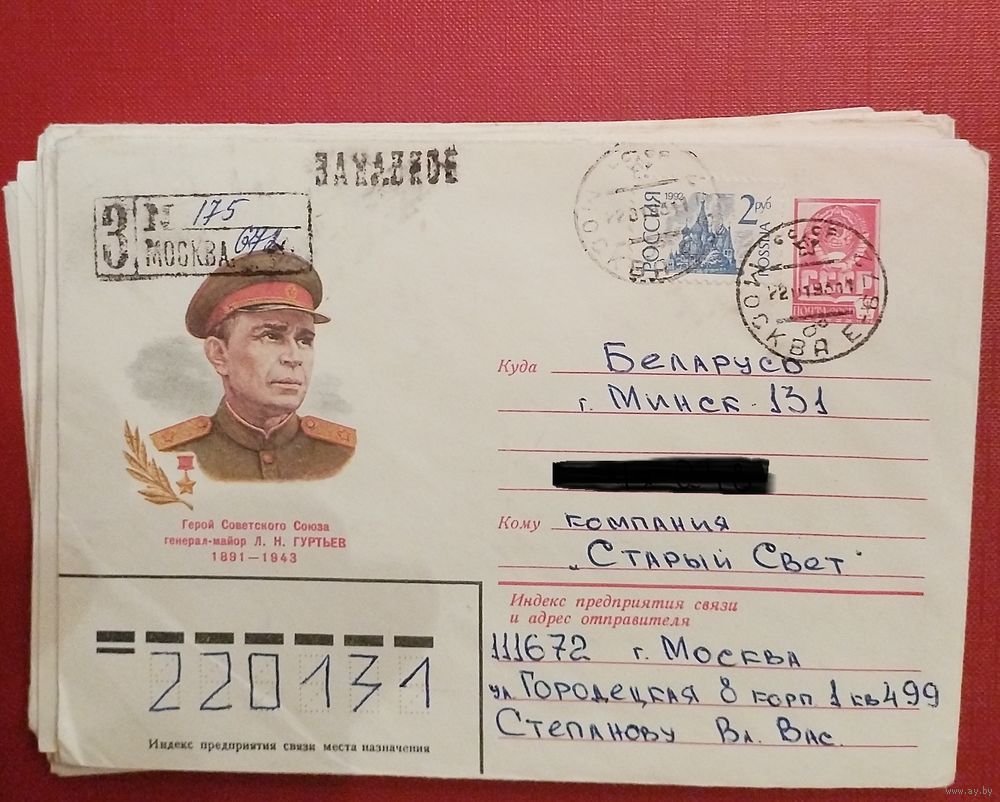 ЗАКАЗНОЕ
З № 175
МОСКВА 672
1992
2 руб
РОССИЯ
ROSSIJA
СССР
МОСКВА
СССР
ПОЧТА
СССР
МОСКВА Е-672
Куда Беларусь
г. Минск-131
Кому компания
„Старый Свет"
Герой Советского Союза
генерал-майор Л. Н. ГУРТЬЕВ
1891—1943
Индекс предприятия связи
и адрес отправителя
111672 г. Москва
ул Городецкая 8 корп 1 кв 499
Степанову Вл. Вас.
220131
Индекс предприятия связи места назначения
www.ay.by